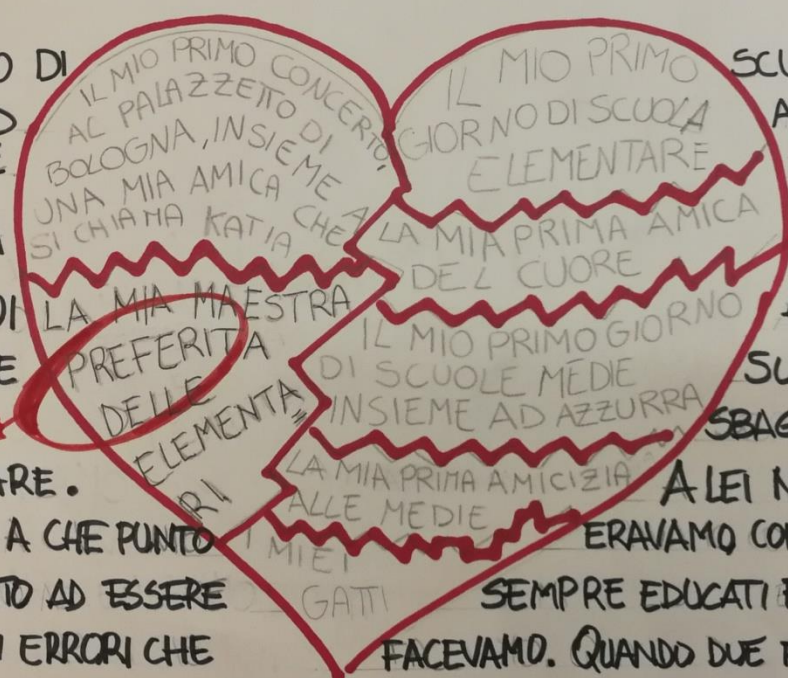 IL MIO PRIMO CONCERTO,
AL PALAZZETTO DI
BOLOGNA, INSIEME A
UNA MIA AMICA CHE
SI CHIAMA KATIA
LA MIA MAESTRA
PREFERITA
DELLE
ELEMENTA
RI
IL MIO PRIMO
GIORNO DI SCUOLA
ELEMENTARE
LA MIA PRIMA AMICA
DEL CUORE
IL MIO PRIMO GIORNO
DI SCUOLE MEDIE
INSIEME AD AZZURRA
LA MIA PRIMA AMICIZIA
ALLE MEDIE
I MIEI
GATTI
DI
ARE.
A CHE PUNTO
TO AD ESSERE
I ERRORI CHE
SCU
SU
SBAG
A LEI N
ERAVAMO CO
SEMPRE EDUCATI E
FACEVAMO. QUANDO DUE